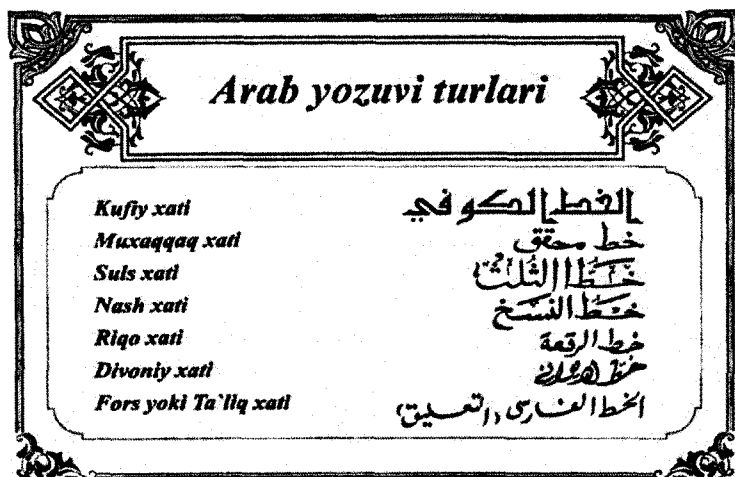 Arab yozuvi turlari
Kufiy xati الخط الكوفي
Muxaqqaq xati خط محقق
Suls xati خط الثلث
Nash xati خط النسخ
Riqo xati خط الرقعة
Divoniy xati خط الديواني
Fors yoki Ta`liq xati الخط الفارسي (التعليق)